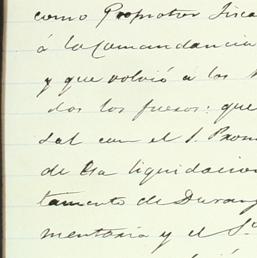 como Promotor Fisca
á la Comandancia
y que volvió á los
dos los fuesos: que
sal con el S. Prom
de esa liquidacion
tamento de Durang
mentaria y el S.